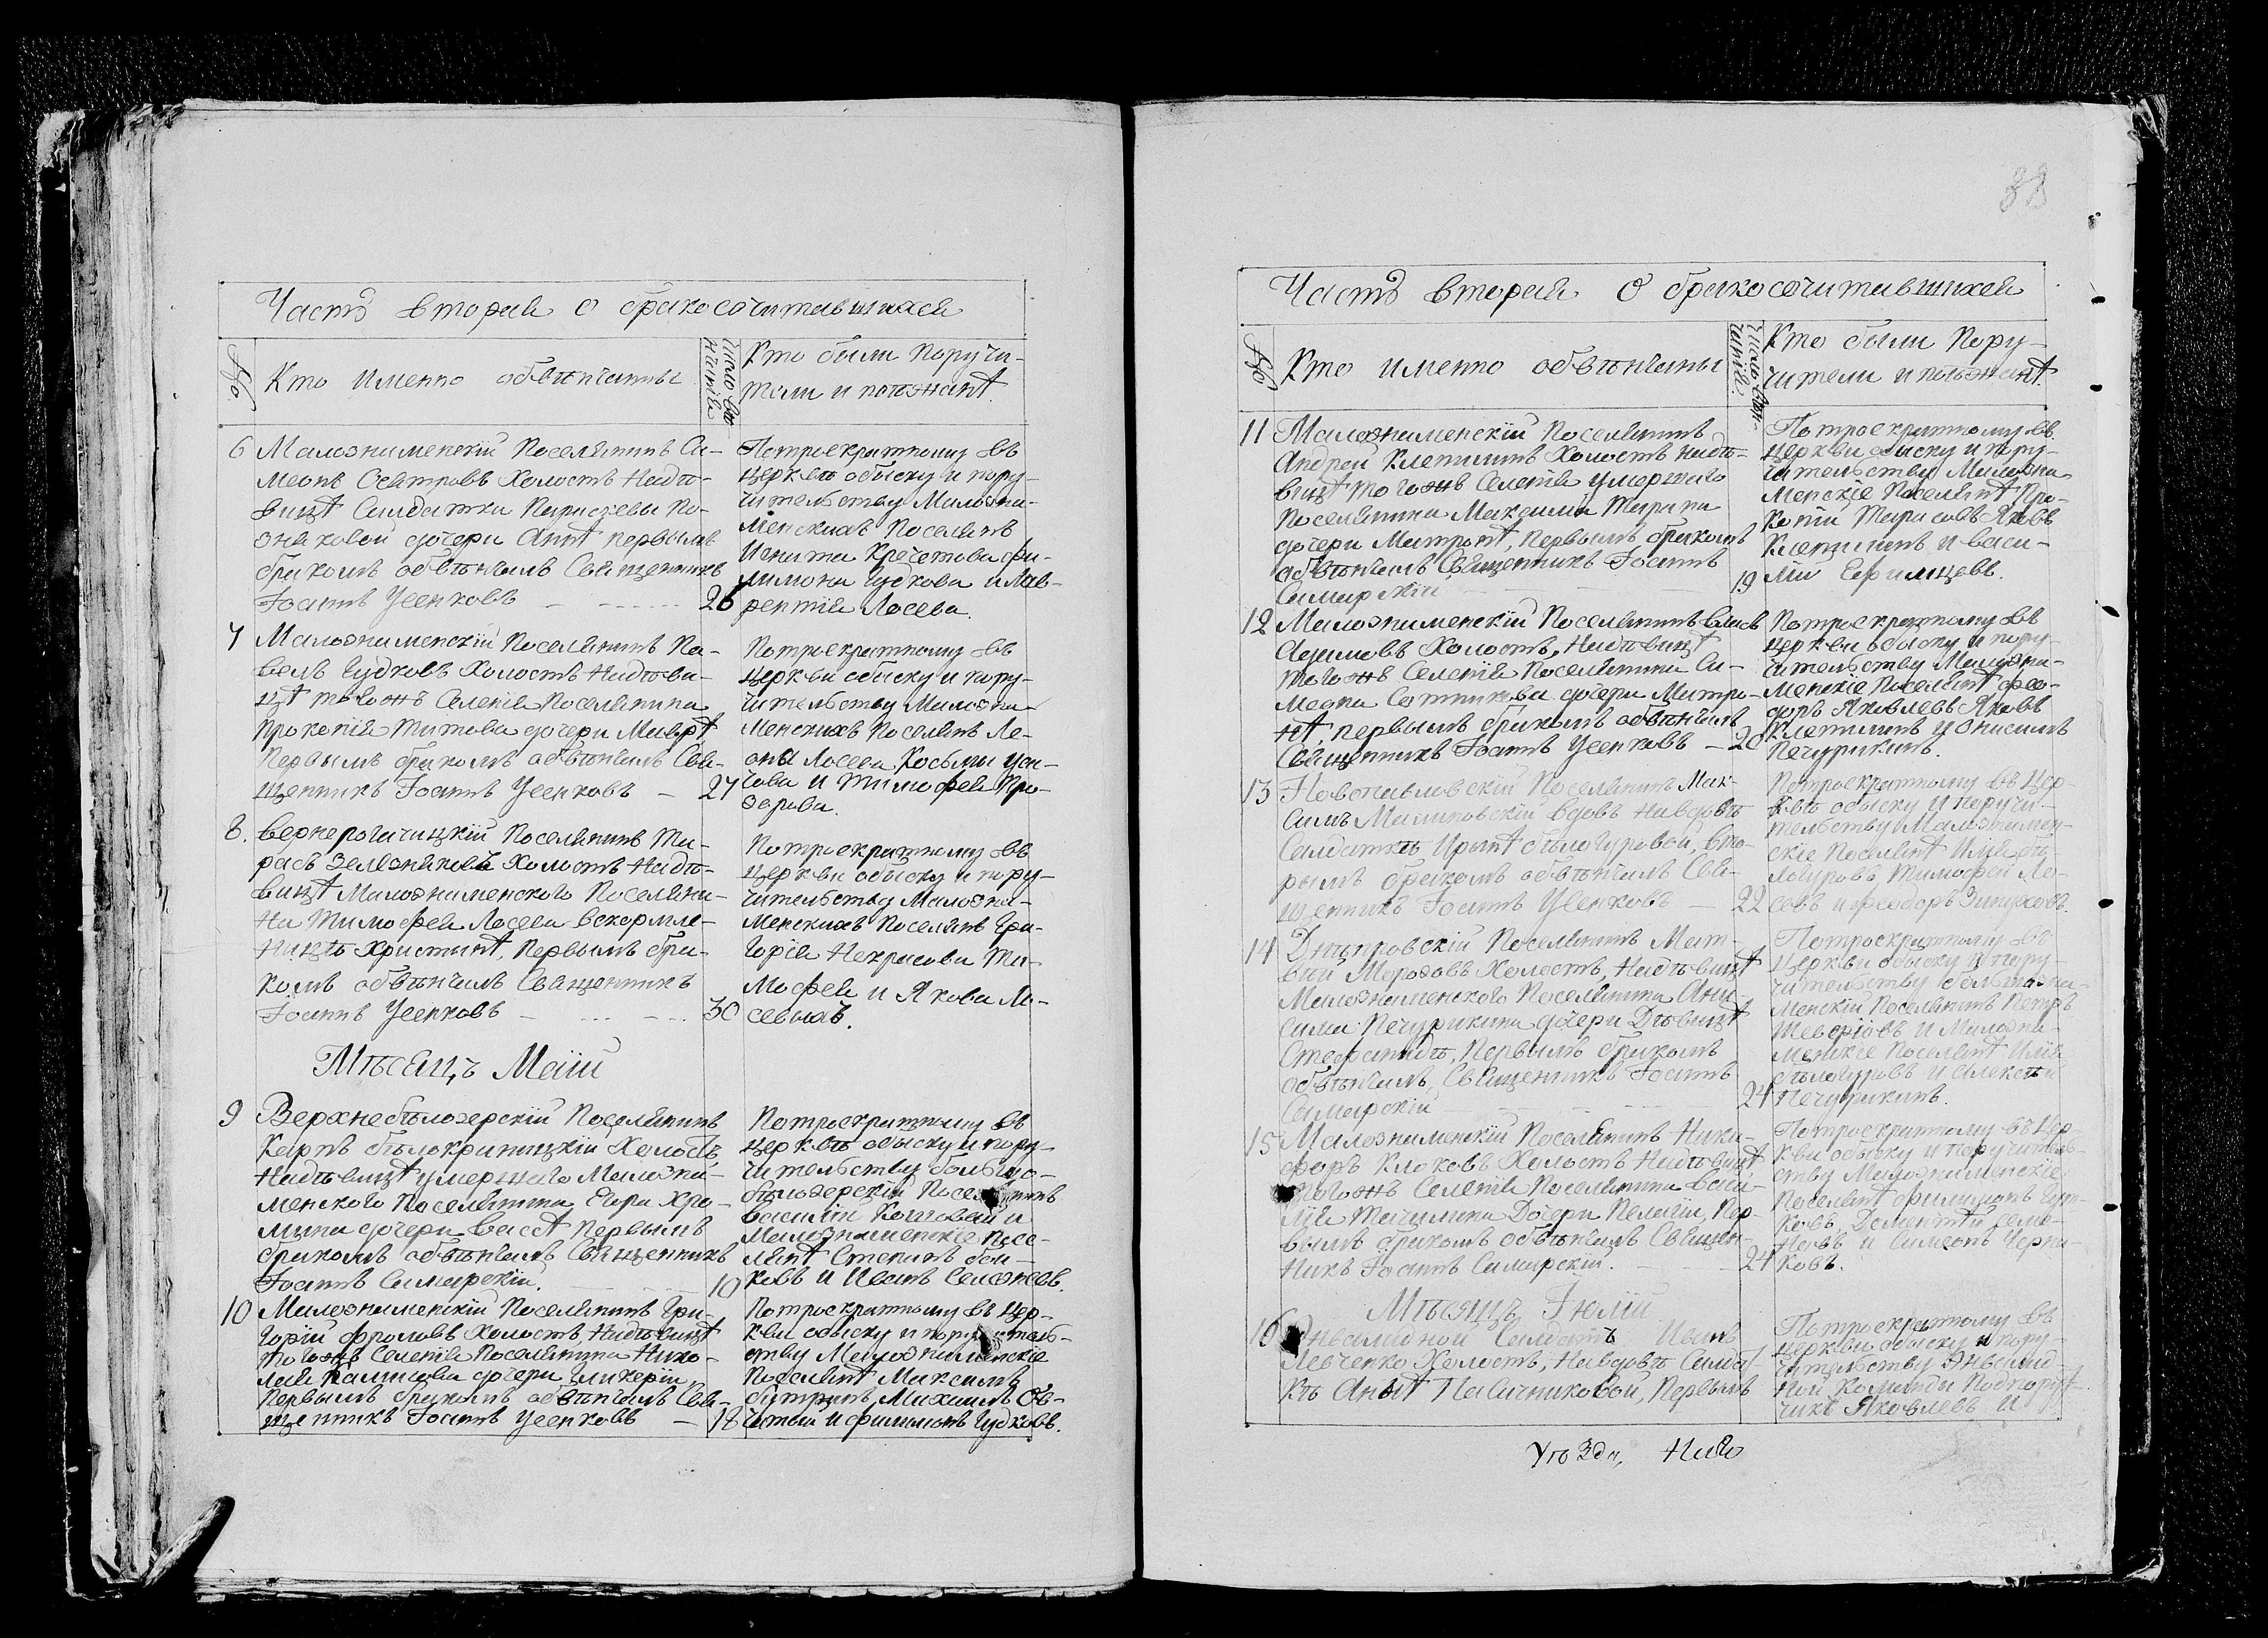 Часть вторая о бракосочитавшихся
№ Кто именно обвѣнчаны
Число вѣнчанія
Кто были поручи-
тели и поѣзжанѣ.
6 Малознаменскій Поселянинъ Си-
меонъ Холостъ Надѣ-
вицѣ Салдатки
дочери Аннѣ первымъ
бракомъ обвѣнчалъ Священникъ
Іоаннъ Усенковъ 26
Потроекратному въ
церквѣ обыску и пору-
чительству Малозна-
менскихъ Поселянъ
Игната Кречетова Фи-
лимона Гудкова и Лав-
рентія Лосева.
7 Малознаменскій Поселянинъ Па-
велъ Гудковъ Холостъ Надѣви-
цѣ тогожъ Селенія Поселянина
Прокопія Титова дочери Маврѣ
Первымъ бракомъ обвѣнчалъ Свя-
щенникъ Іоаннъ Усенковъ — 27
Потроекратному въ
церкви обыску и пору-
чительству Малозна-
менскихъ Поселянъ Ле-
она Лосева Косьмы Уса-
чова и Тимофея Про-
зорова.
8. Верхерогачицкій Поселянинъ Та-
расъ Зелезняковъ Холостъ Надѣ-
вицѣ Малознаменского Поселяни-
на Тимофея Лосева вскормле-
ницѣ Христинѣ, Первымъ бра-
комъ обвѣнчалъ Священникъ
Іоаннъ Усенковъ 30
Потроекратному въ
церкви обыску и пору-
чительству Малозна-
менскихъ Поселянъ Гри-
горія Некрасова Ти-
мофея и Якова Ло-
севыхъ.
Мѣсяцъ Маій
9 Верхнебѣлозерскій Поселянинъ
Карпъ бѣлокриницкій Холостъ
Надѣвицѣ умершаго Малозна-
менского Поселянина Егора Хро-
мина дочери Вассѣ Первымъ
бракомъ обвѣнчалъ Священникъ
Іоаннъ Самарскій. 10
Потроекратному въ
церквѣ обыску и пору-
чительству большо-
бѣлозерскій Поселянинъ
Василій Кошовый и
Малознаменскіе Посе-
лянѣ Степанъ бой-
ковъ и Иванъ Селезневъ.
10 Малознаменскій Поселянинъ Гри-
горій Фроловъ Холостъ, Надѣвицѣ
тогожъ Селенія Поселянина Нико-
лая дочери Гликеріи,
Первымъ бракомъ обвѣнчалъ Свя-
щенникъ Іоаннъ Усенковъ — 18
Потроекратному въ цер-
кви обыску и поручитель-
ству Малознаменскіе
Поселянѣ Максимъ
Михаилъ Ов-
и Филимонъ Гудковъ.
Часть вторая О бракосочитавшихся
№ Кто именно обвѣнчаны
Число вѣнчанія.
Кто были Пору-
чители и поѣзжанѣ.
11 Малознаменскій Поселянинъ
Андрей Клепилинъ Холостъ Надѣ-
вицѣ тогожъ Селенія умершаго
Поселянина Максима Тарана
дочери Матронѣ, Первымъ бракомъ
обвѣнчалъ Священникъ Іоаннъ
Самарскій 19
Потроекратному въ
церкви обыску и пору-
чительству Малозна-
менскіе Поселянѣ Про-
копій Тарасовъ Яковъ
Клепилинъ и Васи-
лій Ефимцовъ.
12 Малознаменскій Поселянинъ Власъ
Холостъ, Надѣвицѣ
тогожъ Селенія Поселянина Си-
меона Сотникова дочери Матро-
нѣ, первымъ бракомъ обвѣнчалъ
Священникъ Іоаннъ Усенковъ — 20
Потроекратному въ
церкви обыску и пору-
чительству Малозна-
менскіе Поселянѣ Фео-
доръ Яковлевъ Яковъ
Клепилинъ и Онисимъ
Печурикинъ.
13 Новопавловскій Поселянинъ Мак-
симъ Малиновскій вдовъ Навдовѣ
Салдаткѣ Иринѣ бѣлогуровой, вто-
рымъ бракомъ обвѣнчалъ Свя-
щенникъ Іоаннъ Усенковъ — 22
Потроекратному въ цер-
квѣ обыску и поручи-
тельству Малознамен-
скіе Поселянѣ Илія бѣ-
логуровъ Тимофей Ло-
севъ и Феодоръ Зинуховъ.
14 Днѣпровскій Поселянинъ Мат-
вій Морозовъ Холостъ, Надѣвицѣ
Малознаменского Поселянина Они-
сима Печурикина дочери Дѣвицѣ
Стефанидѣ, Первымъ бракомъ
обвѣнчалъ, Священникъ Іоаннъ
Самарскій 24
Потроекратному въ
церкви обыску и пору-
чительству
менскій Поселянинъ Петръ
и Малозна-
менскіе Поселянѣ Илія
бѣлогуровъ и Алексѣй
Печурикинъ.
15 Малознаменскій Поселянинъ Ники-
форъ Клоковъ Холостъ Надѣвицѣ
тогожъ Селенія Поселянина Васи-
лія Дочери Пелагіи, Пер-
вымъ бракомъ обвѣнчалъ Священ-
никъ Іоаннъ Самарскій. 24
Потроекратному въ цер-
кви обыску и поручитель-
ству Малознаменскіе
Поселянѣ Филимонъ Гуд-
ковъ, Дементій Семе-
новъ и Симеонъ Черни-
ковъ.
Мѣсяцъ Іюлій
16 Инвалидной Салдатъ Иванъ
Левченко Холостъ, Навдовѣ Салда-
кѣ Аннѣ Первымъ
Потроекратному въ
церкви обыску и пору-
чительству Инвалид-
ной Команды Подпору-
чикъ Яковлевъ И